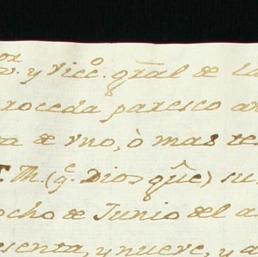 y vicc.º gral de la
roceda paresco an
a de vno, ò mas te
Th. (q.e Dios gûe) su
ocho de Junio del a
senta, y nueve, y a